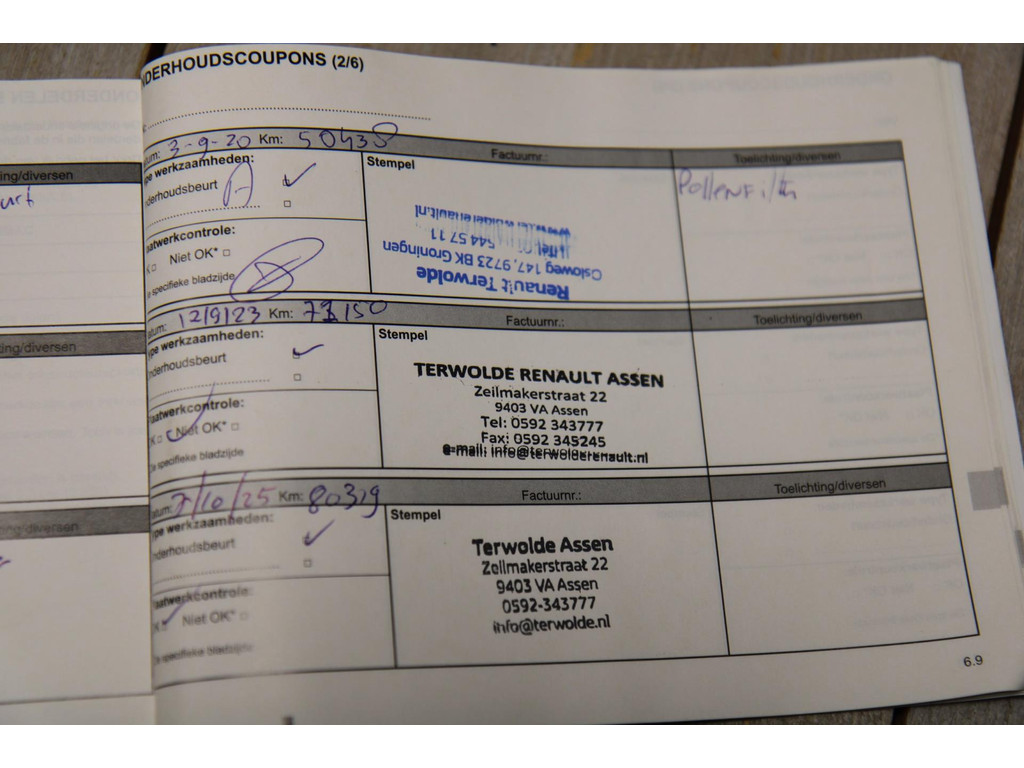 NDERHOUDSCOUPONS (2/6)
ing/diversen
urt
tum: 3-9-20 Km: 50438 Factuurnr.: Toelichting/diversen
ype werkzaamheden: Stempel
nderhoudsbeurt A
Pollenfilter
aatwerkcontrole:
K Niet OK*
e specifieke bladzijde
Renault Terwolde
Osloweg 147, 9723 BK Groningen
544 57 11
ing/diversen
atum: 12/9/23 Km: 150 Factuurnr.: Toelichting/diversen
ype werkzaamheden: Stempel
nderhoudsbeurt
aatwerkcontrole:
K Niet OK*
e specifieke bladzijde
TERWOLDE RENAULT ASSEN
Zeilmakerstraat 22
9403 VA Assen
Tel: 0592 343777
Fax: 0592 345245
e-mail: info@terwolderenault.nl
ing/diversen
atum: 7/10/25 Km: 80319 Factuurnr.: Toelichting/diversen
ype werkzaamheden: Stempel
nderhoudsbeurt
aatwerkcontrole:
K Niet OK*
e specifieke bladzijde
Terwolde Assen
Zeilmakerstraat 22
9403 VA Assen
0592-343777
info@terwolde.nl
6.9